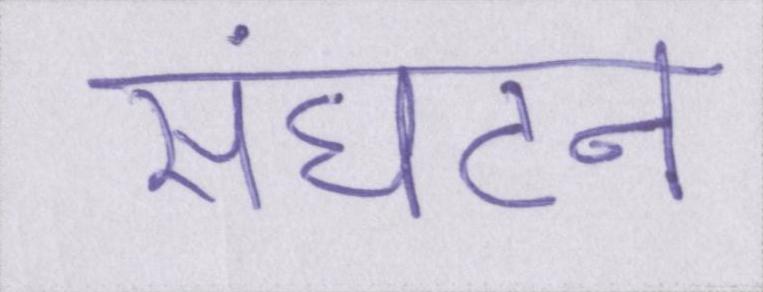 संघटन